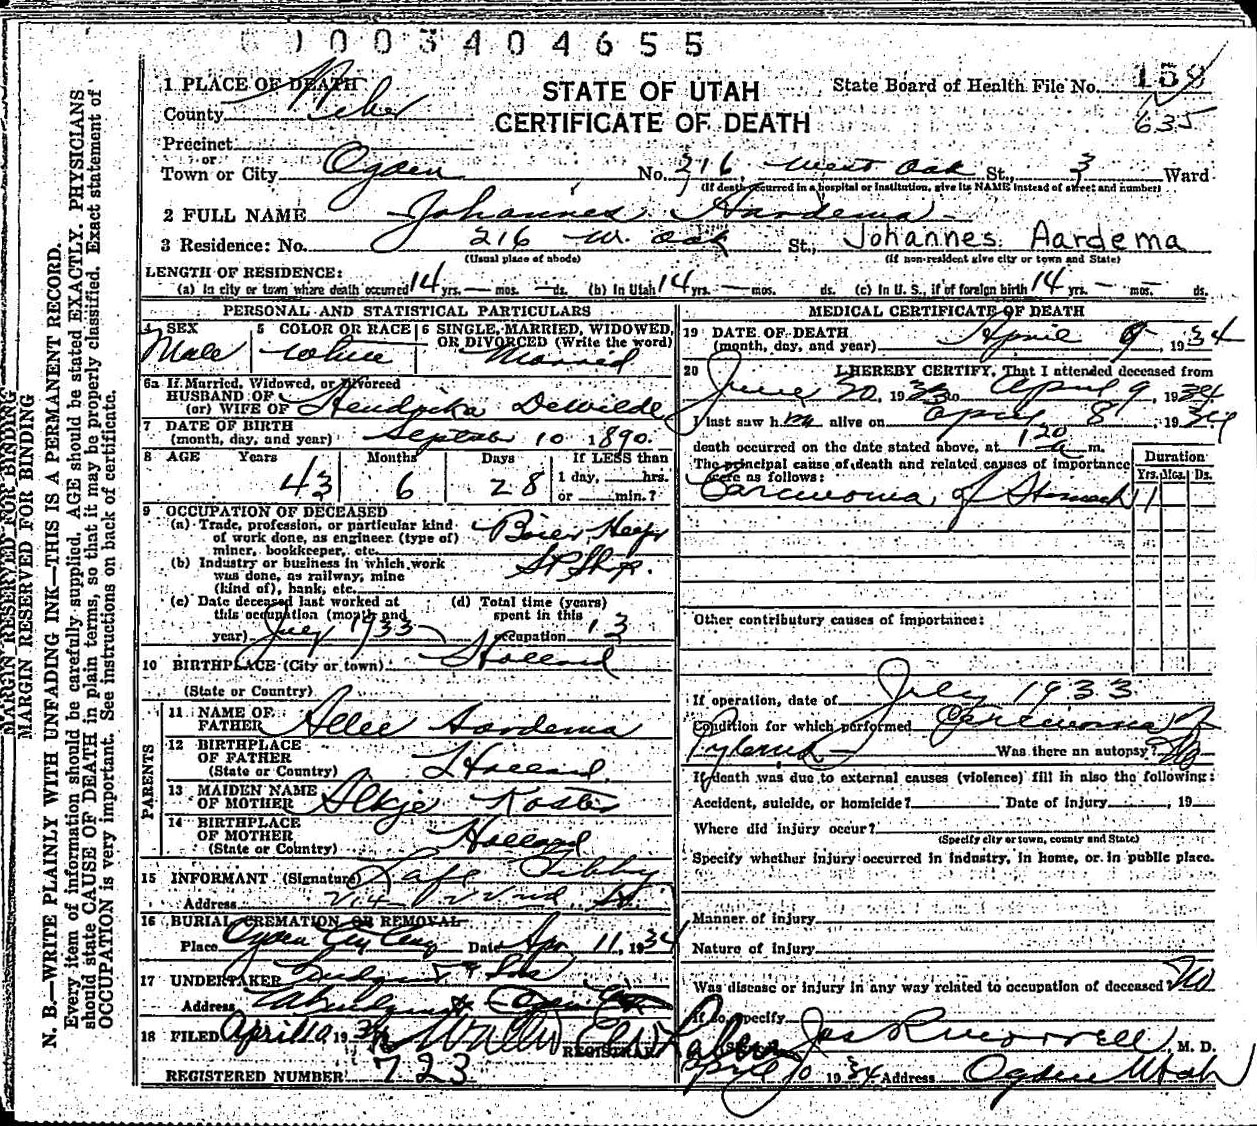 1003404655
1 PLACE OF DEATH
STATE OF UTAH
State Board of Health File No. 159
County Weber
CERTIFICATE OF DEATH
635
Precinct
or
Town or City Ogden No. 216 West Oak St., 3 Ward
(If death occurred in a hospital or institution, give its NAME instead of street and number)
2 FULL NAME Johannes Aardema
3 Residence: No. 216 W. Oak St., Johannes Aardema
(Usual place of abode) (If non-resident give city or town and State)
LENGTH OF RESIDENCE:
(a) In city or town where death occurred 14 yrs. — mos. — ds. (b) In Utah 14 yrs. — mos. ds. (c) In U. S., if of foreign birth 14 yrs. — mos. ds.
PERSONAL AND STATISTICAL PARTICULARS
4 SEX 5 COLOR OR RACE 6 SINGLE, MARRIED, WIDOWED,
OR DIVORCED (Write the word)
Male White Married
6a If Married, Widowed, or Divorced
HUSBAND OF
(or) WIFE OF Hendrika DeWilde
7 DATE OF BIRTH
(month, day, and year) Septemb 10 1890.
8 AGE Years Months Days If LESS than
1 day, hrs.
43 6 28
or min.?
9 OCCUPATION OF DECEASED
(a) Trade, profession, or particular kind
of work done, as engineer (type of)
miner, bookkeeper, etc.
(b) Industry or business in which work
was done, as railway, mine
(kind of), bank, etc. SP Shop.
(c) Date deceased last worked at
this occupation (month and
year) July 1933
(d) Total time (years)
spent in this
occupation 13
10 BIRTHPLACE (City or town) Holland
(State or Country)
PARENTS
11 NAME OF
FATHER Aardema
12 BIRTHPLACE
OF FATHER
(State or Country) Holland
13 MAIDEN NAME
OF MOTHER Koster
14 BIRTHPLACE
OF MOTHER
(State or Country) Holland
15 INFORMANT (Signature) Tibby
Address 22nd St.
16 BURIAL, CREMATION OR REMOVAL
Place Ogden City Cemy Date Apr 11, 1934
17 UNDERTAKER Lindquist & Sons
Address
18 FILED April 10 1934
REGISTRAR
REGISTERED NUMBER 723
MEDICAL CERTIFICATE OF DEATH
19 DATE OF DEATH
(month, day, and year) April 9, 1934
20 I HEREBY CERTIFY, That I attended deceased from
June 20, 1933 to April 9, 1934
I last saw him alive on April 8, 1934
death occurred on the date stated above, at 120 a m.
The principal cause of death and related causes of importance
were as follows:
Duration
Yrs. Mos. Ds.
Carcinoma of Stomach 1
Other contributory causes of importance:
If operation, date of July 1933
Condition for which performed Carcinoma of
Pylorus Was there an autopsy? No
If death was due to external causes (violence) fill in also the following:
Accident, suicide, or homicide? Date of injury , 19
Where did injury occur?
(Specify city or town, county and State)
Specify whether injury occurred in industry, in home, or in public place.
Manner of injury
Nature of injury
Was disease or injury in any way related to occupation of deceased No
If so, specify
Jas R Morrell, M. D.
April 10 1934 Address Ogden Utah
MARGIN RESERVED FOR BINDING
MARGIN RESERVED FOR BINDING
N. B.—WRITE PLAINLY WITH UNFADING INK—THIS IS A PERMANENT RECORD.
Every item of information should be carefully supplied. AGE should be stated EXACTLY. PHYSICIANS
should state CAUSE OF DEATH in plain terms, so that it may be properly classified. Exact statement of
OCCUPATION is very important. See instructions on back of certificate.